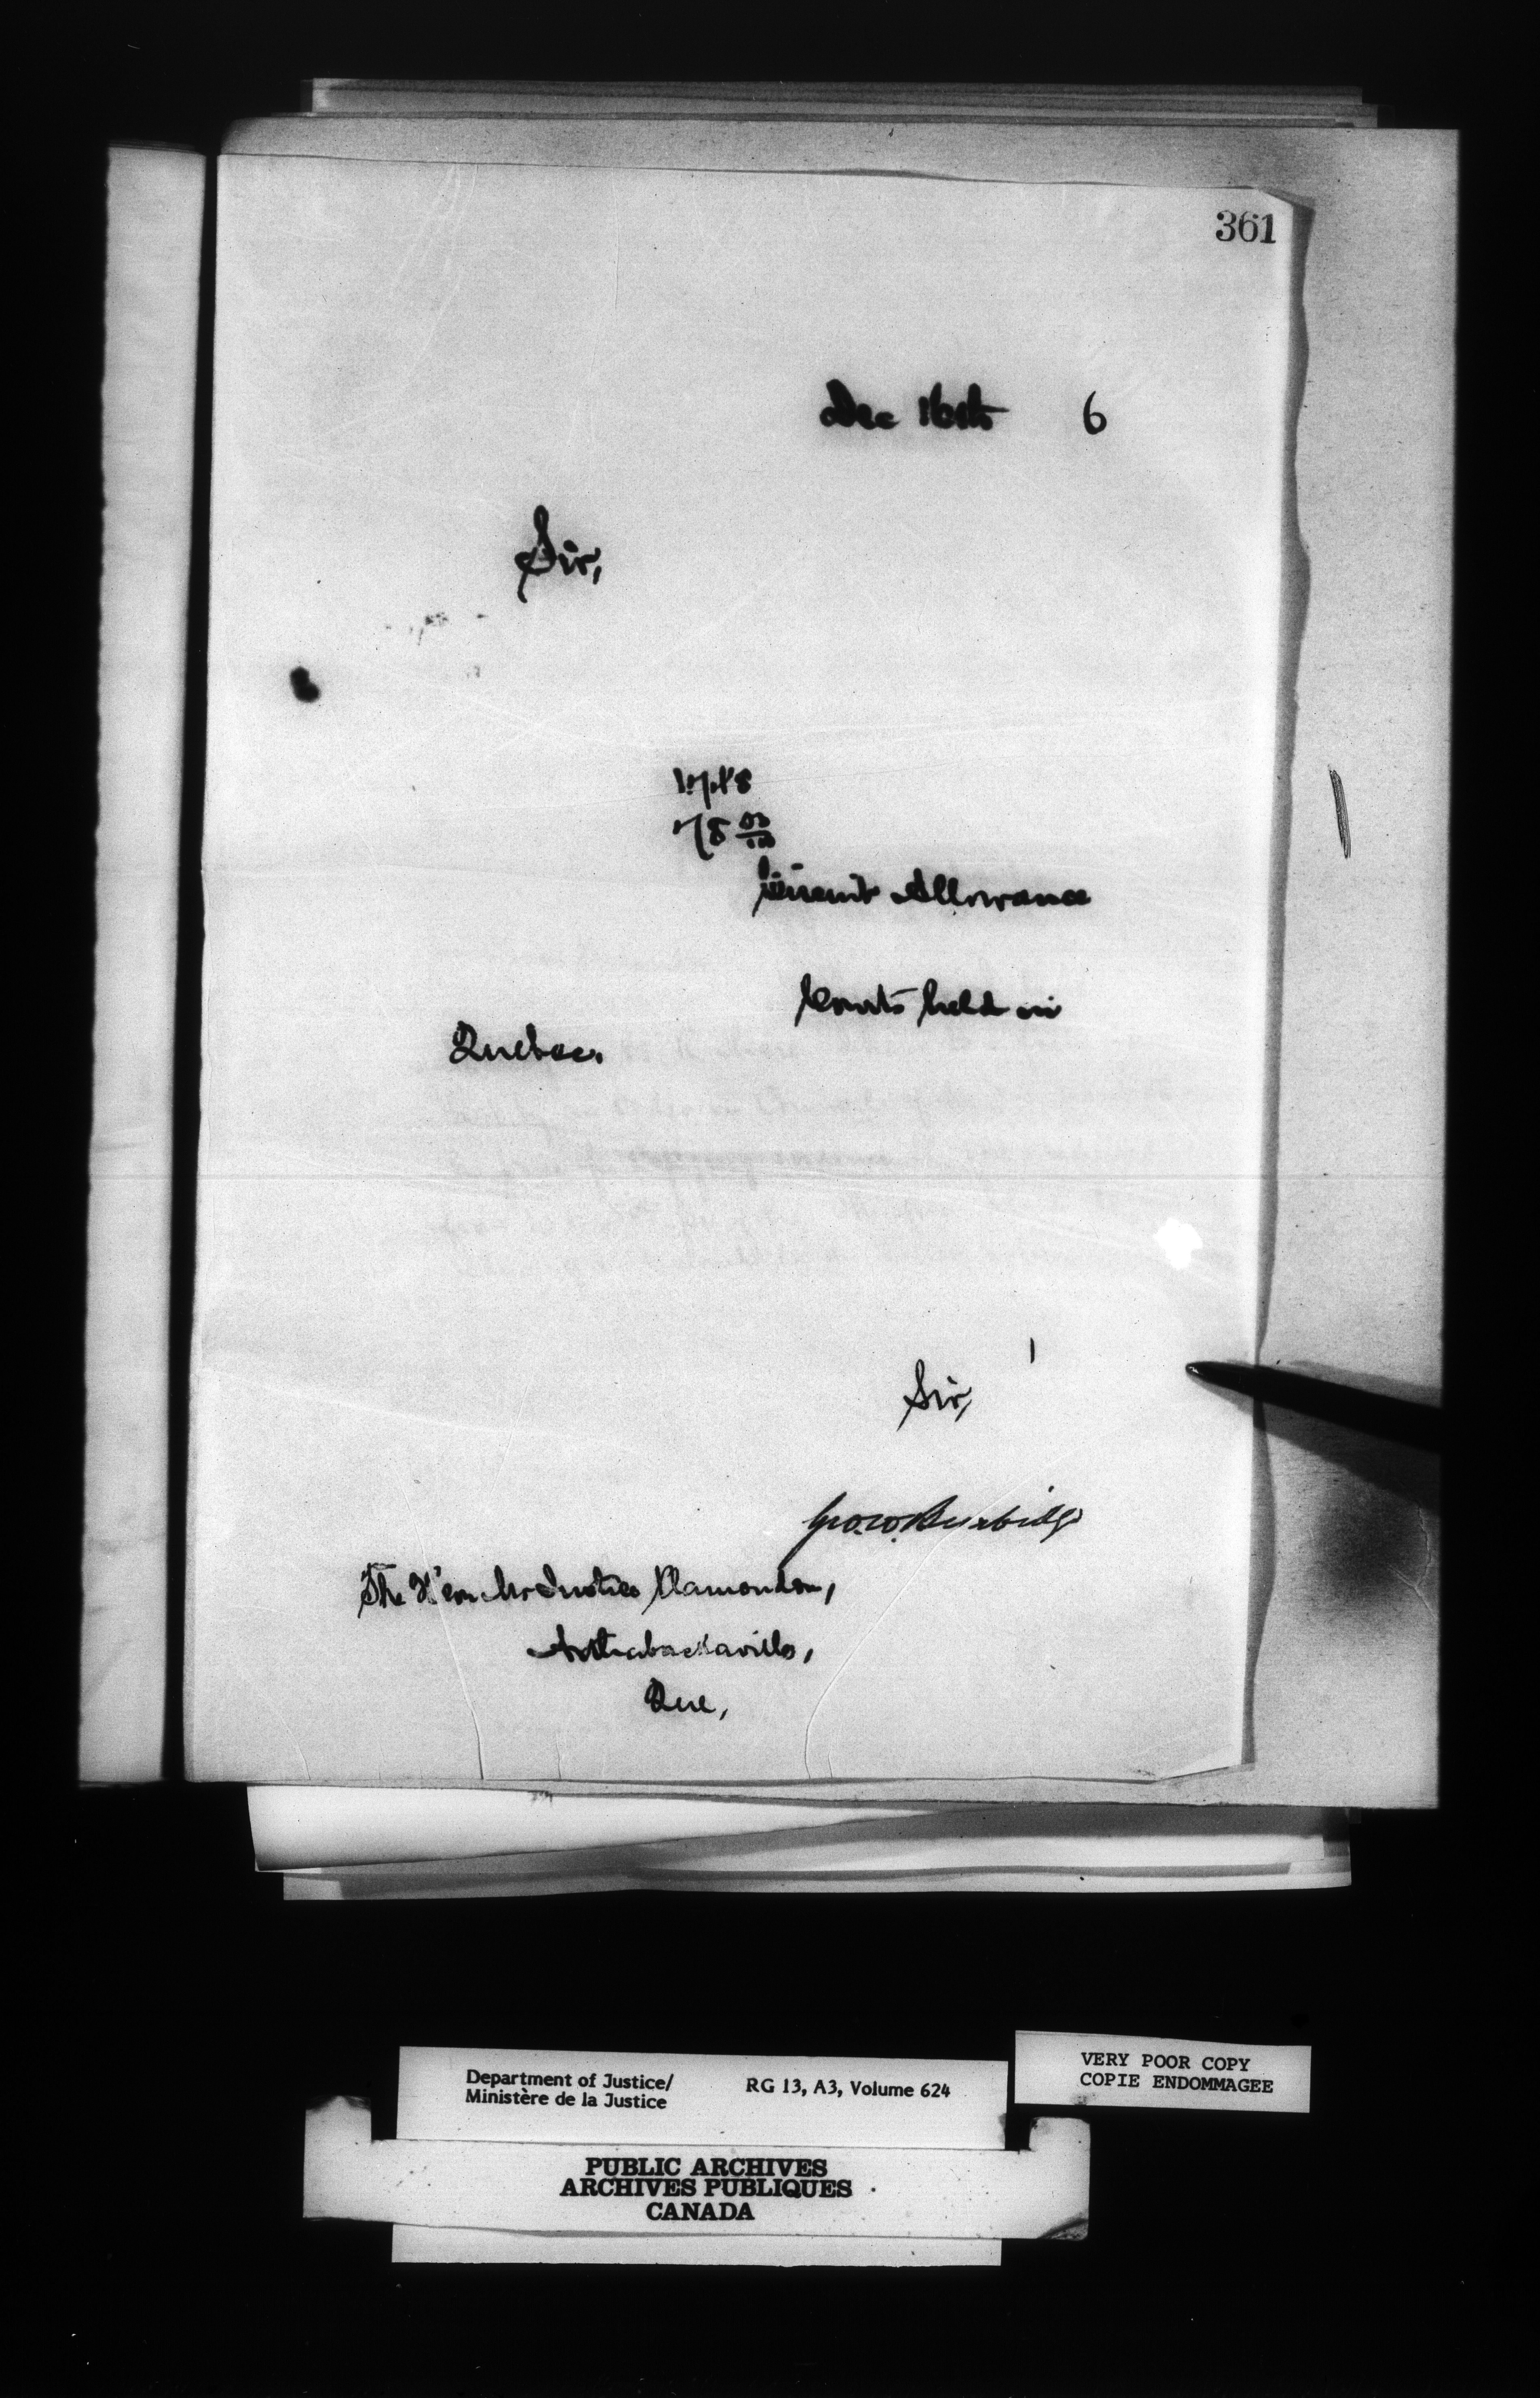 361
Dec 16th 6
Sir,
78 00/100
Circuit Allowance
Courts held in
Quebec.
Sir,
Geo. W. Burbidge
The Hon Mr Justice Plamondon,
Arthabaskaville,
Que,
Department of Justice/
Ministère de la Justice
RG 13, A3, Volume 624
VERY POOR COPY
COPIE ENDOMMAGEE
PUBLIC ARCHIVES
ARCHIVES PUBLIQUES
CANADA